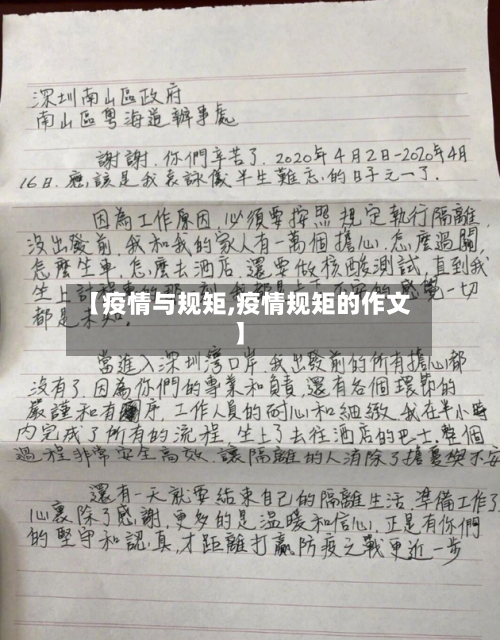 深圳南山區政府
南山區粵海道辦事處
謝謝,你們辛苦了,2020年4月2日-2020年4月
16日,應該是我袁詠儀半生難忘的日子之一了.
因為工作原因,必須要按照規定執行隔離,
沒出發前,我和我的家人有一萬個擔心,怎麼過關,
怎麼坐車,怎麼去酒店,還要做核酸測試,直到我
坐上計程車的那刻,我都是上下不安的感覺,一切
都是未知.
【疫情与规矩,疫情规矩的作文
】
當進入深圳灣口岸,我出發前的所有擔心都
沒有了,因為你們的專業和負責,還有各個環節的
嚴謹和有序,工作人員的耐心和細緻,我在半小時
內完成了所有的流程,坐上了去往酒店的巴士,整個
過程非常安全高效,讓隔離的人消除了擔憂與不安
還有一天就要結束自己的隔離生活,準備工作了,
心裏除了感謝,更多的是溫暖和信心,正是有你們
的堅守和認真,才距離打贏防疫之戰更近一步